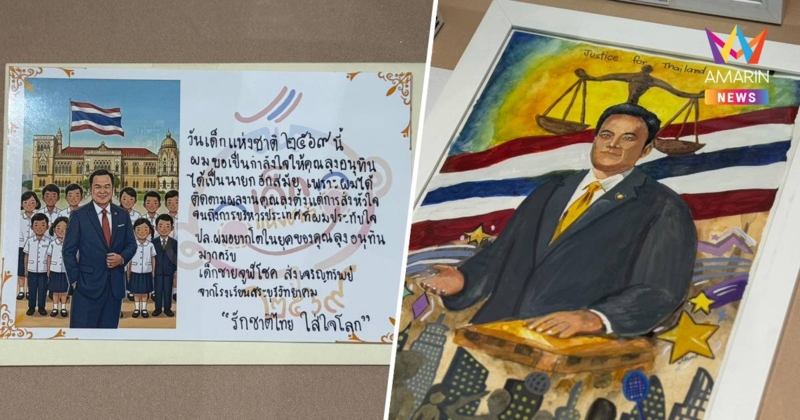 วันเด็กแห่งชาติ ๒๕๖๙ นี้
ผมขอเป็นกำลังใจให้คุณลุงอนุทิน
ได้เป็นนายก อีกสมัย เพราะผมได้
ติดตามผลงานคุณลุงตั้งแต่การส่งหัวใจ
จนถึงการบริหารประเทศ ที่ผมประทับใจ
ปล.ผมอยากโตในยุคของคุณลุง อนุทิน
มากครับ
เด็กชายจุฬีโชค ส่งเจริญทรัพย์
จากโรงเรียนสระบุรีวิทยาคม
"รักชาติไทย ใส่ใจโลก"
๒๕๖๙
Justice for Thailand
AMARIN
NEWS